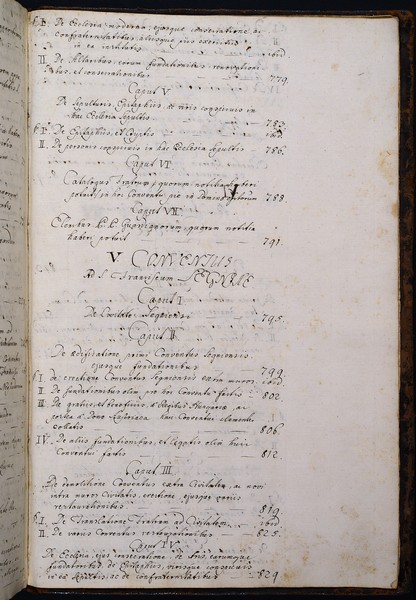 § I. De Ecclesia moderna, ejusque consecratione, ac
Confraternitatibus, aliisque piis exercitiis
in ea institutis ibid.
II. De Altaribus, eorum fundationibus, renovationi-
bus, et consecrationibus 779.
Caput V
De Sepulturis, Epitaphiis, et viris conspicuis in
hac Ecclesia Sepultis 783.
§ I. De Epitaphiis, et Cryptis ibid.
II. De personis conspicuis in hac Ecclesia Sepultis 786.
Caput VI
Catalogus Fratrum, quorum notitia haberi
potuit, in hoc Conventu pie in Domino 788
Caput VII
P. P. Guardianorum, quorum notitia
haberi potuit 791.
V CONVENTUS
Ad S. Franciscum
Caput I
De Civitate 795.
Caput II
De aedificatione primi Conventus
ejusque fundationibus 799
§ I. de erectione Conventus extra muros ibid.
II. De fundationibus olim pro hoc Conventu factis 802.
III. De gratiis, et beneficiis, a Regibus Hungariae, ac
postea a Domo Austriaca huic Conventui clementer
collatis 806.
IV. De aliis fundationibus, et legatis olim huic
Conventui factis 812.
Caput III
De demolitione Conventus extra Civitatem, ac novi
intra muros Civitatis erectione, ejusque
restaurationibus 819
§ I. De Translatione Fratrum ad Civitatem ibid.
II. De variis Conventus restaurationibus 825.
Caput IV
De Ecclesia, ejus consecratione, de Aris, earumque
fundatoribus, de Epitaphiis, virisque conspicuis
in ea Sepultis, ac de confraternitatibus 829